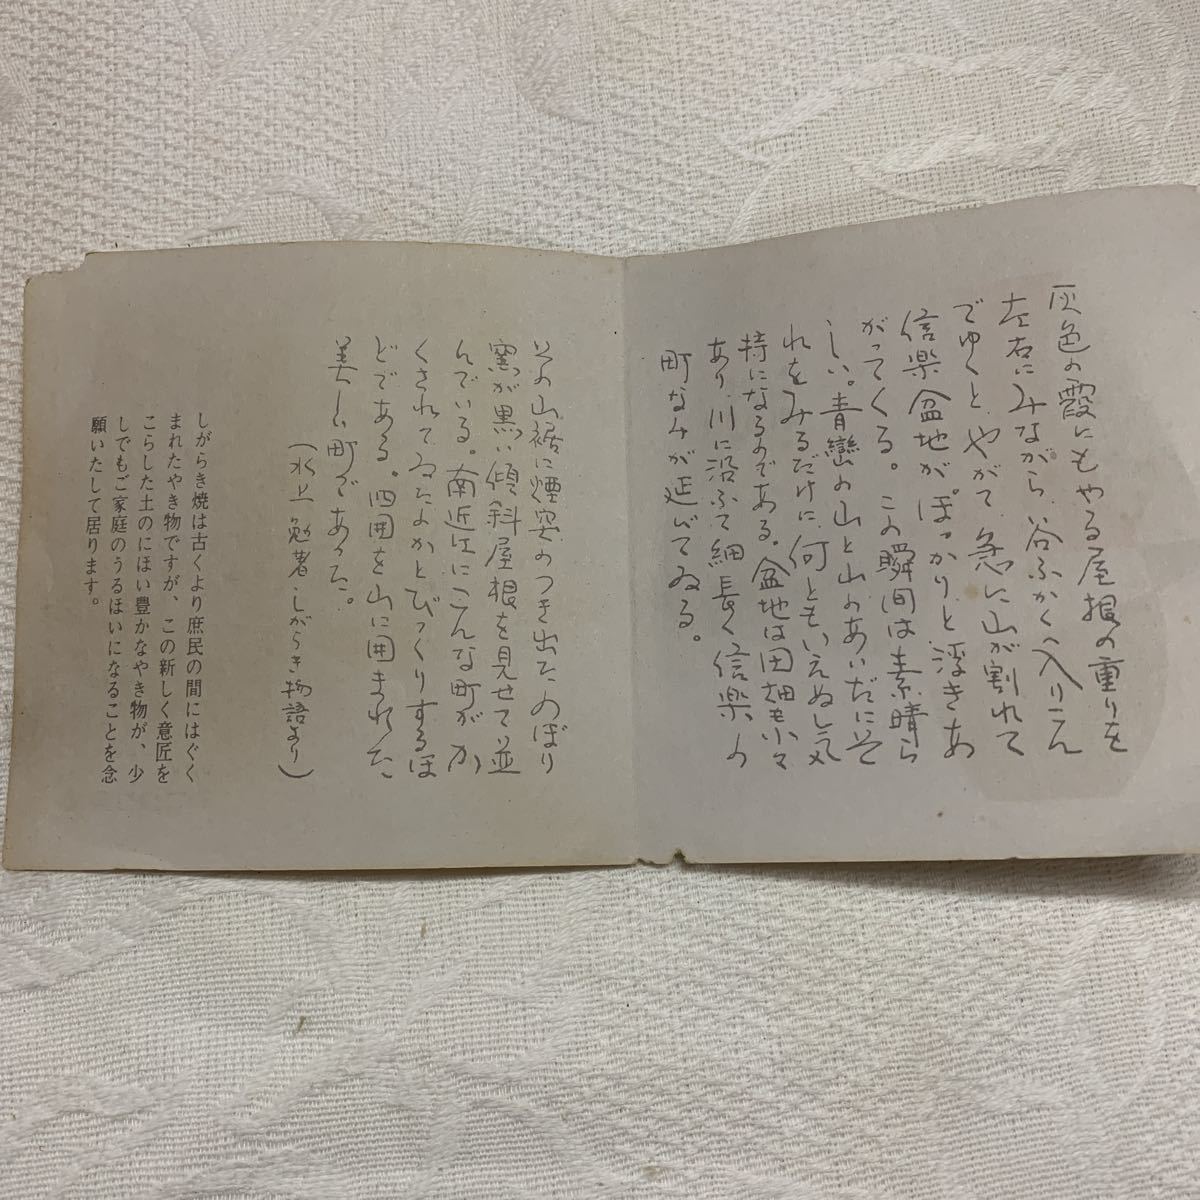 灰色の霞にもやる屋根の重りを
左右にみながら、谷ふかく入りこん
でゆくと、やがて、急に山が割れて
信楽盆地がぽっかりと浮きあ
がってくる。この瞬間は素晴ら
しい。青巒の山と山のあいだにそ
れをみるだけに、何ともいえぬし気
持になるのである。盆地は田畑も小々
あり、川に沿ふて細長く信楽の
町なみが延びてゐる。
その山裾に煙突のつき出たのぼり
窯が黒い傾斜屋根を見せて並
んでいる。南近江にこんな町がか
くされてゐたのかとびっくりするほ
どである。四囲を山に囲まれた
美しい町であった。
(水上勉著・しがらき物語より)
しがらき焼は古くより庶民の間にはぐく
まれたやき物ですが、この新しく意匠を
こらした土のにほい豊かなやき物が、少
しでもご家庭のうるほいになることを念
願いたして居ります。